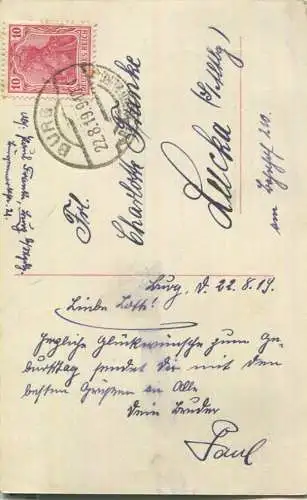 10 10
BURG
22.8.19.9
Frl.
Charlotte Franke
Lucka
am 20.
Abs: Paul Franke, Burg
24.
Burg, d. 22.8.19.
Liebe Lotte!
Herzliche Glückwünsche zum Ge-
burtstag sendet dir mit den
besten Grüßen an Alle
Dein Bruder
Paul